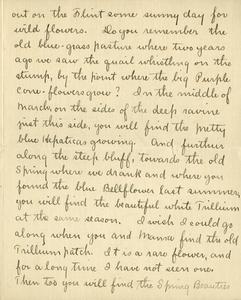 out on the Flint some sunny day for
wild flowers. Do you remember the
old blue-grass pasture where two years
ago we saw the quail whistling on the
stump, by the point where the big Purple
Cone-flowers grow? In the middle of
March, on the sides of the deep ravine
just this side, you will find the pretty
blue Hepaticas growing. And further
along the steep bluff, towards the old
Spring where we drank and where you
found the blue Bellflower last summer,
you will find the beautiful white Trillium
at the same season. I wish I could go
along when you and Mamma find the old
Trillium patch. It is a rare flower, and
for a long time I have not seen one.
Then too you will find the Spring Beauties